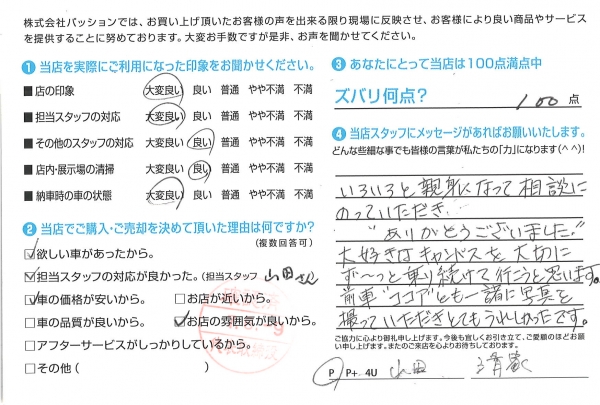 株式会社パッションでは、お買い上げ頂いたお客様の声を出来る限り現場に反映させ、お客様により良い商品やサービス
を提供することに努めております。大変お手数ですが是非、お声を聞かせてください。
❶ 当店を実際にご利用になった印象をお聞かせください。
■店の印象 大変良い 良い 普通 やや不満 不満
■担当スタッフの対応 大変良い 良い 普通 やや不満 不満
■その他のスタッフの対応 大変良い 良い 普通 やや不満 不満
■店内・展示場の清掃 大変良い 良い 普通 やや不満 不満
■納車時の車の状態 大変良い 良い 普通 やや不満 不満
❷ 当店でご購入・ご売却を決めて頂いた理由は何ですか?
(複数回答可)
☑欲しい車があったから。
☑担当スタッフの対応が良かった。(担当スタッフ 山田さん
☑車の価格が安いから。 □お店が近いから。
□車の品質が良いから。 ☑お店の雰囲気が良いから。
□アフターサービスがしっかりしているから。
□その他( )
❸ あなたにとって当店は100点満点中
ズバリ何点? 100 点
❹ 当店スタッフにメッセージがあればお願いいたします。
どんな些細な事でも皆様の言葉が私たちの「力」になります(^^)!
いろいろと親身になって相談に
のっていただき
"ありがとうございました。"
大好きなキャンバスを大切に
ず〜っと乗り続けて行こうと思います。
前車"ココア"とも一諸に写真を
撮っていただきとてもうれしかったです。
ご協力に心より御礼申し上げます。今後も宜しくお引き立て、ご愛顧のほどお願
い申し上げます。またのご来店を心よりお待ちしております。
P P+ 4U 山田